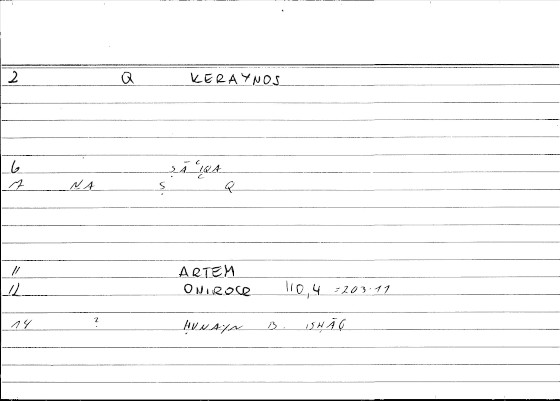 2 Q KERAYNOS
6 ṢĀʿIQA
A NA Ṣ Q
11 ARTEM
12 ONIROCR 110,4 =203.11
14 ? ḤUNAYN B. ISḤĀQ